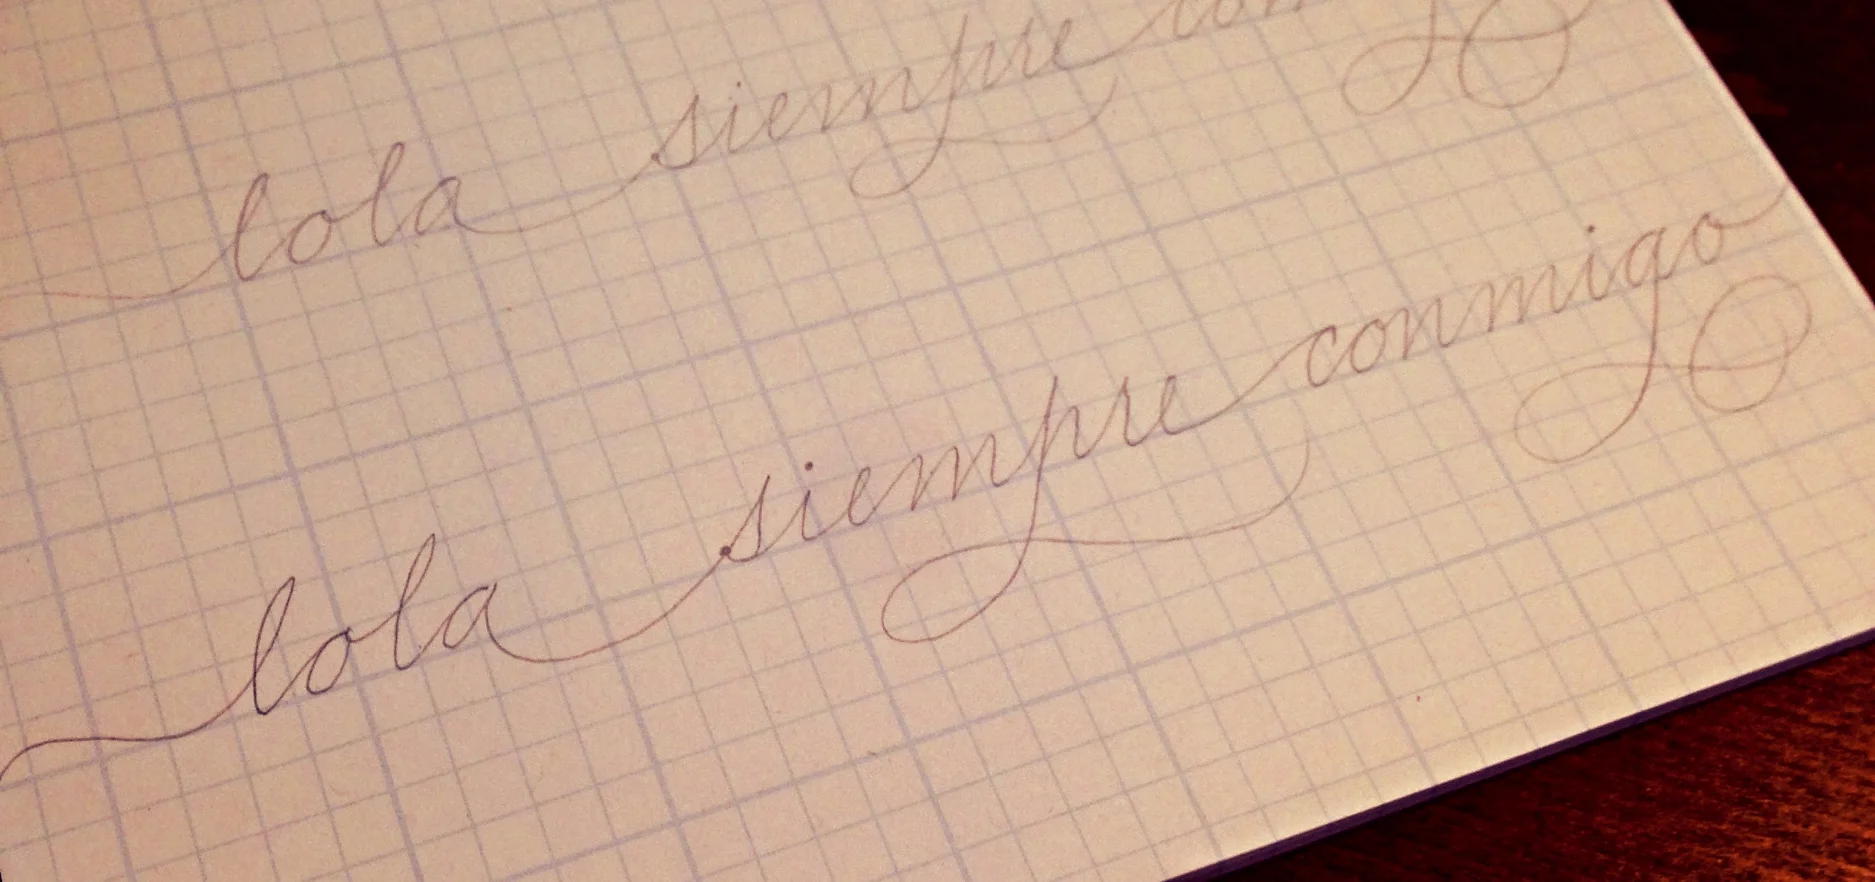 lola siempre con
lola siempre conmigo